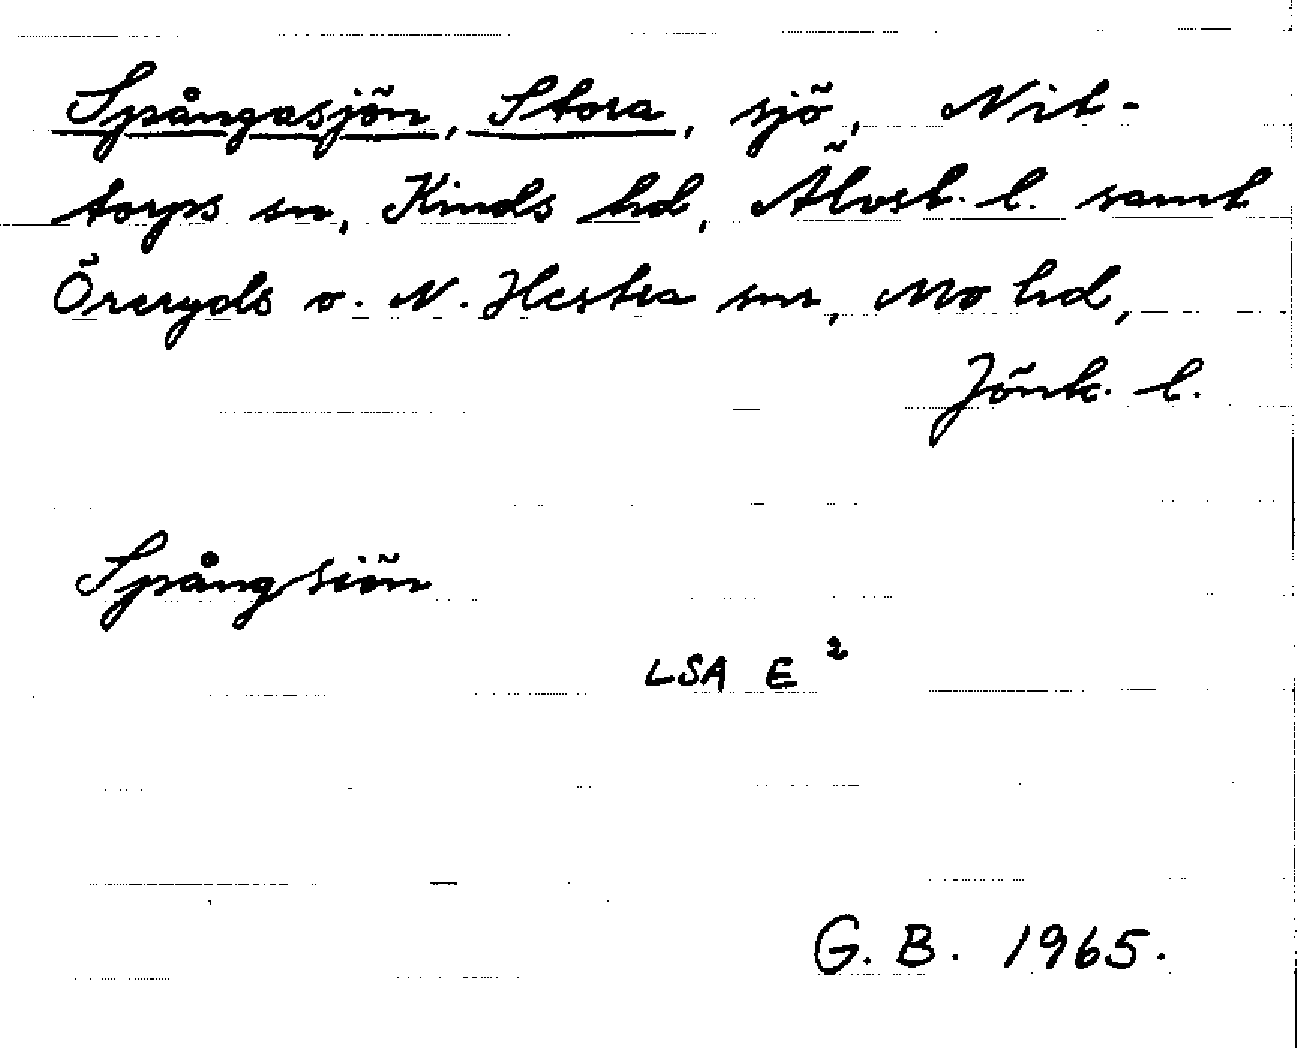 Spångasjön, Stora, sjö, Nit-
torps sn, Kinds hd, Älvsb. l. samt
Öreryds o. N. Hestra snr, Mo hd,
Jönk. l.
Spångsiön
LSA E 2
G. B. 1965.